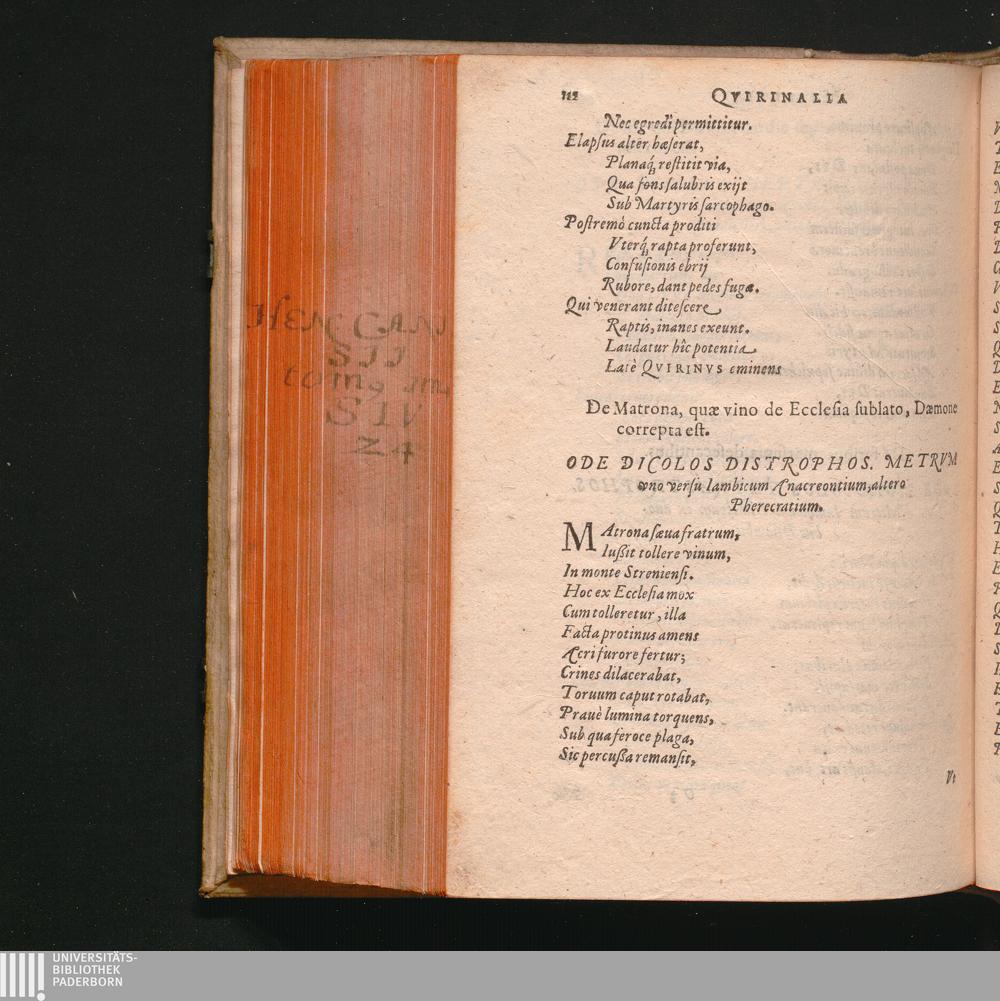 112 QVIRINALIA
Nec egredi permittitur.
Elapſus alter hæſerat,
Planaq́; reſtitit via,
Qua fons ſalubris exijt
Sub Martyris ſarcophago.
Poſtremò cuncta proditi
Vterq́; rapta proferunt,
Confuſionis ebrij
Rubore, dant pedes fugæ.
Qui venerant diteſcere
Raptis, inanes exeunt.
Laudatur hîc potentia
Latè QVIRINVS eminens
De Matrona, quæ vino de Eccleſia ſublato, Dæmone
correpta eſt.
ODE DICOLOS DISTROPHOS. METRVM
vno verſu Iambicum Anacreontium, altero
Pherecratium.
MAtrona ſæua fratrum,
Iußit tollere vinum,
In monte Strenienſi.
Hoc ex Eccleſia mox
Cum tolleretur, illa
Facta protinus amens
Acri furore fertur;
Crines dilacerabat,
Toruum caput rotabat,
Prauè lumina torquens,
Sub qua feroce plaga,
Sic percußa remanſit,
Vt
HEN CANI
SII
com9 im
S IV
Z 4
UNIVERSITÄTS-
BIBLIOTHEK
PADERBORN